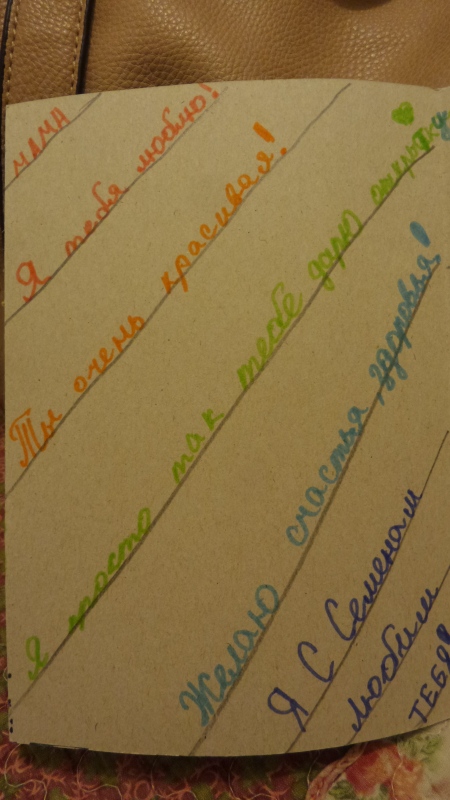 МАМА
Я тебя люблю!
Ты очень красивая!
Я просто так тебе дарю открытку
Желаю счастья, здоровья!
Я С Семенам
любим
ТЕБЯ